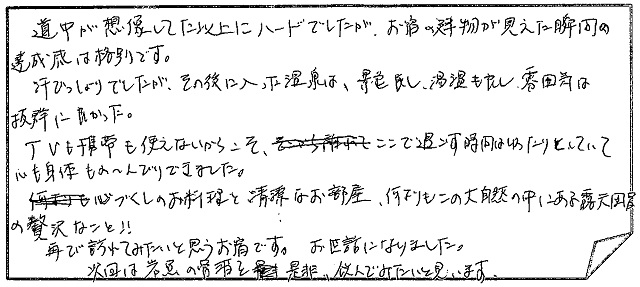 道中が想像してた以上にハードでしたが、お宿の建物が見えた瞬間の
達成感は格別です。
汗びっしょりでしたが、その後に入った温泉は、景色良し、湯温も良し、雰囲気は
抜群に良かった。
TVも携帯も使えないからこそ、ここで過ごす時間はゆったりとしていて
心も身体ものんびりできました。
心づくしのお料理と清潔なお部屋、何よりもこの大自然の中にある露天風呂
の贅沢なこと!!
再び訪れてみたいと思うお宿です。 お世話になりました。
次回は岩魚の骨酒を是非、飲んでみたいと思います。